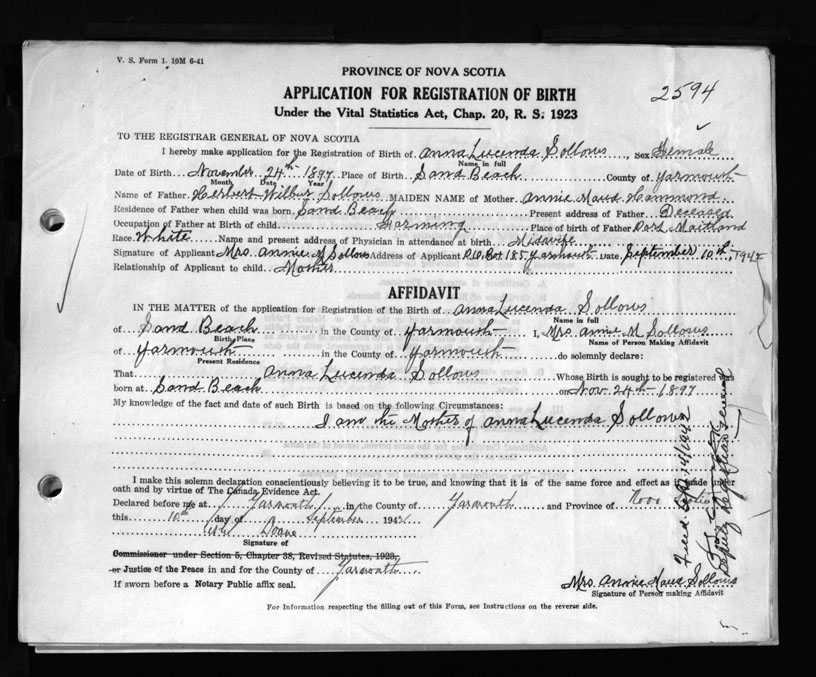 V. S. Form 1. 10M 6-41
PROVINCE OF NOVA SCOTIA
APPLICATION FOR REGISTRATION OF BIRTH
2594
Under the Vital Statistics Act, Chap. 20, R. S. 1923
TO THE REGISTRAR GENERAL OF NOVA SCOTIA
I hereby make application for the Registration of Birth of Anna Lucenda Sollows, Sex Female
Name in full
Date of Birth November 24th 1897 Place of Birth Sand Beach County of Yarmouth
Month Date Year
Name of Father Herbert Wilbur Sollows MAIDEN NAME of Mother Annie Maud Hammond
Residence of Father when child was born Sand Beach Present address of Father Deceased
Occupation of Father at Birth of child Farming Place of birth of Father Port Maitland
Race White Name and present address of Physician in attendance at birth Midwife
Signature of Applicant Mrs. Annie M Sollows Address of Applicant P.O. Box 185 Yarmouth Date September 10th, 1942
Relationship of Applicant to child Mother
AFFIDAVIT
IN THE MATTER of the application for Registration of the Birth of Anna Lucenda Sollows
Name in full
of Sand Beach in the County of Yarmouth I, Mrs Annie M Sollows
Birth Place Name of Person Making Affidavit
of Yarmouth in the County of Yarmouth do solemnly declare:
Present Residence
That Anna Lucenda Sollows Whose Birth is sought to be registered was
born at Sand Beach on Nov. 24th 1897
My knowledge of the fact and date of such Birth is based on the following Circumstances:
I am the Mother of Anna Lucenda Sollows
I make this solemn declaration conscientiously believing it to be true, and knowing that it is of the same force and effect as if made under
oath and by virtue of The Canada Evidence Act.
Declared before me at Yarmouth in the County of Yarmouth and Province of Nova Scotia
this 10th day of September 1942
Doane
Signature of
Commissioner under Section 5, Chapter 38, Revised Statutes, 1923,
or Justice of the Peace in and for the County of Yarmouth
If sworn before a Notary Public affix seal.
Mrs. Annie Maud Sollows
Signature of Person making Affidavit
For Information respecting the filling out of this Form, see Instructions on the reverse side.
Deputy Registrar General